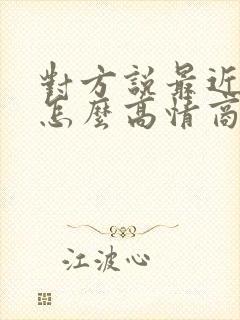 對方說最近
怎麼高情商
江波心